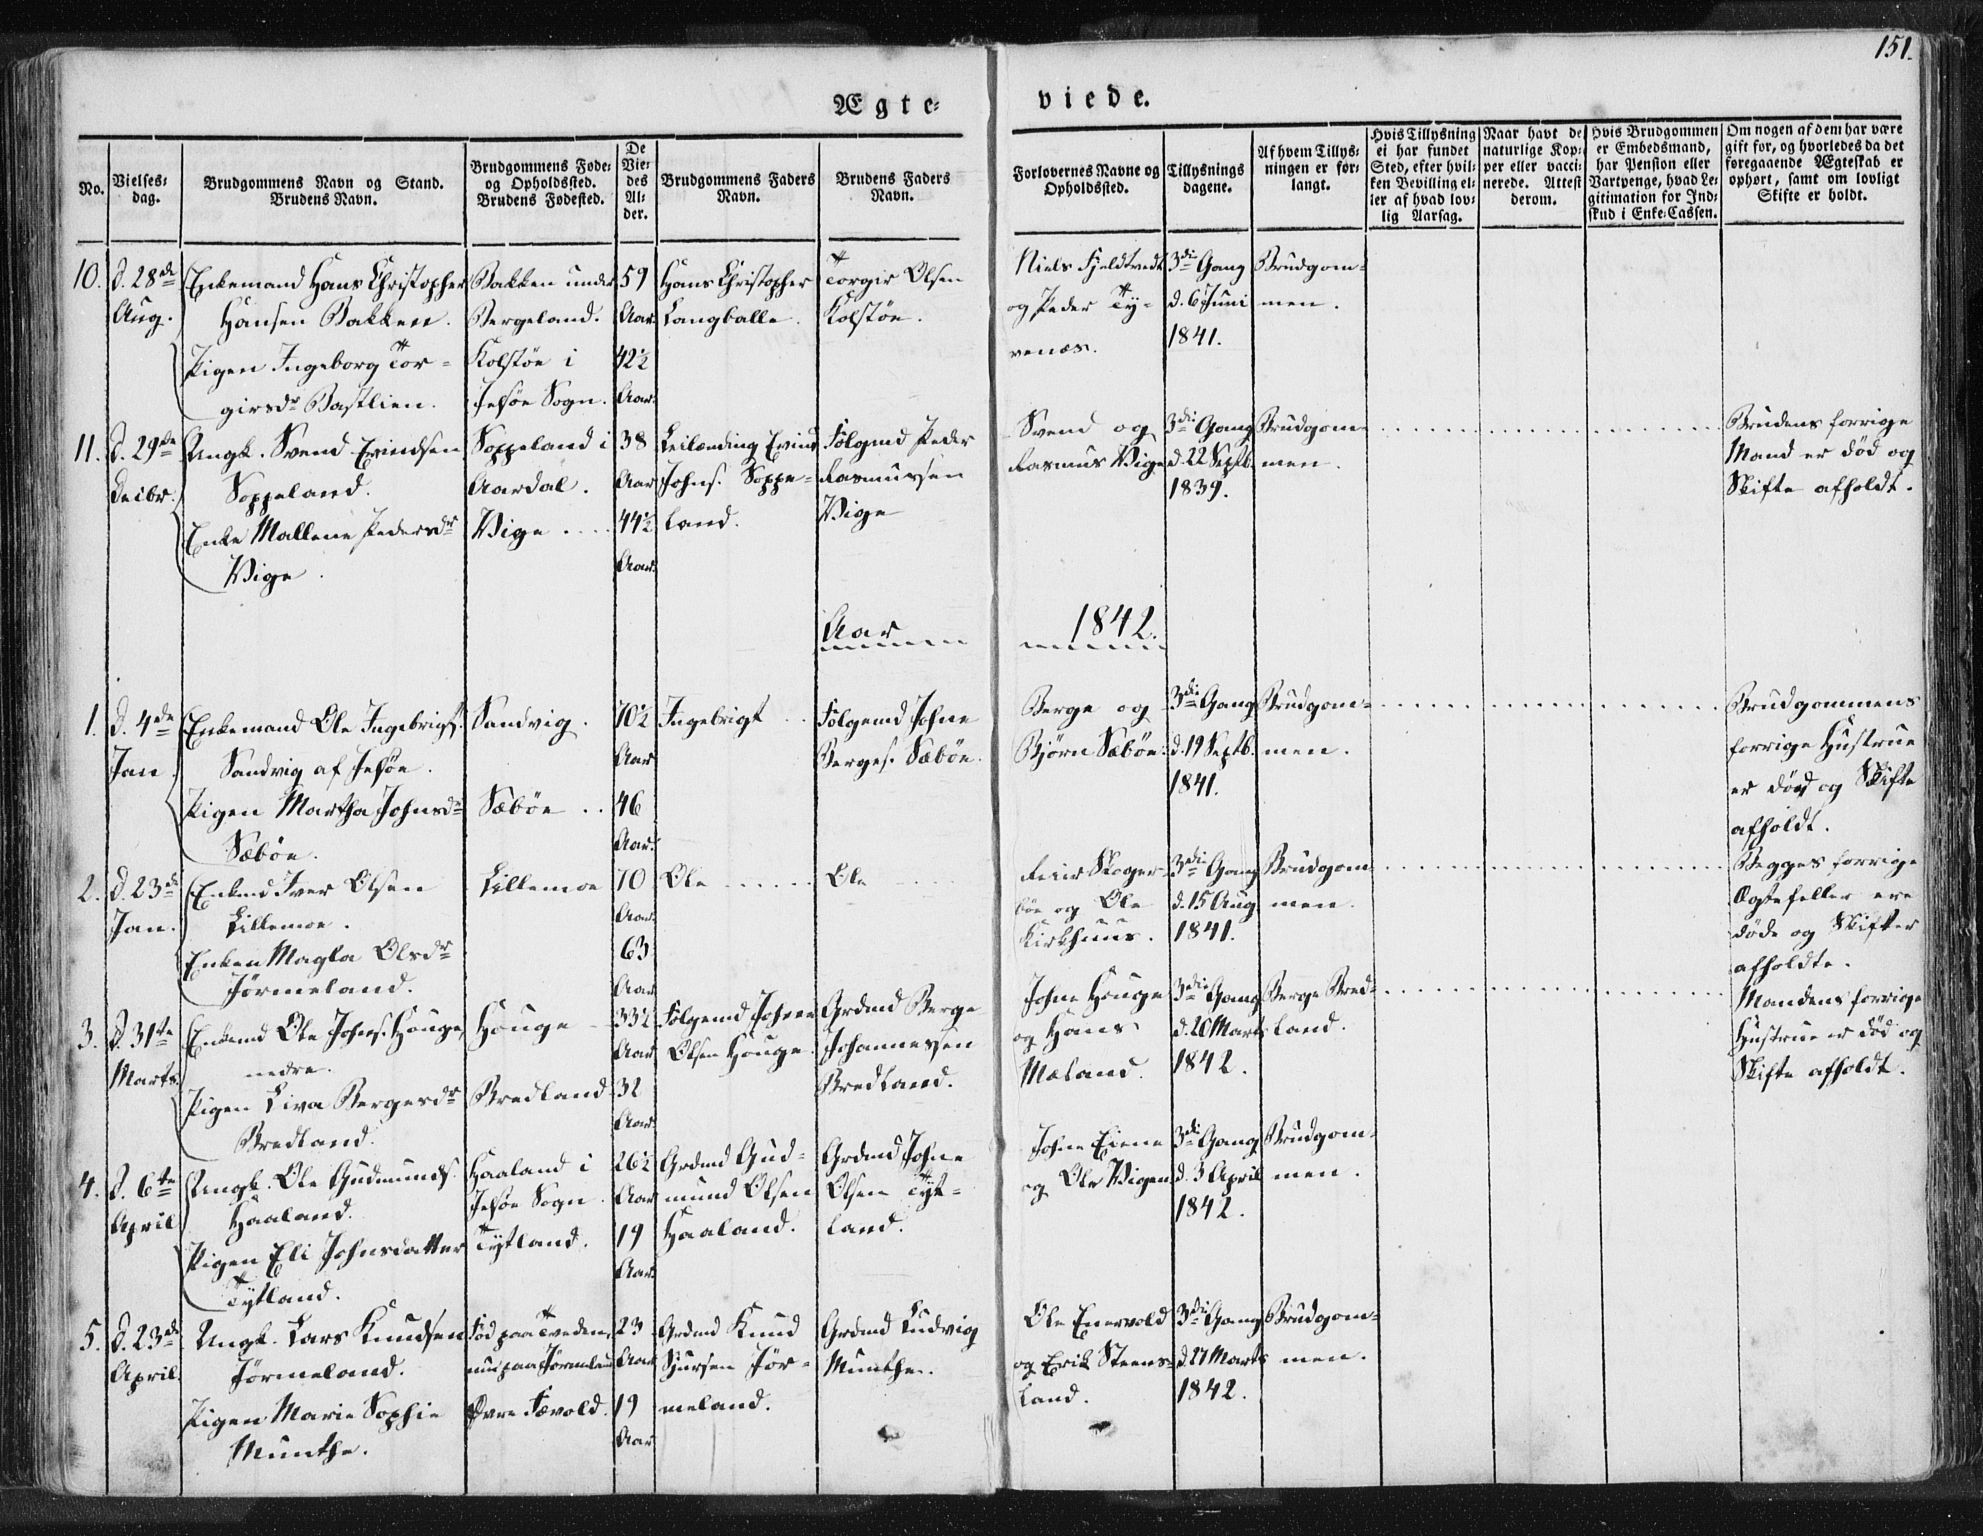 151.
Ægte-
viede.
No.
Vielses-
dag.
Brudgommens Navn og Stand.
Brudens Navn.
Brudgommens Føde-
og Opholdssted.
Brudens Fødested.
De
Vie-
des
Al-
der.
Brudgommens Faders
Navn.
Brudens Faders
Navn.
Forlovernes Navne og
Opholdssted.
Tillysnings
dagene.
Af hvem Tillys-
ningen er for-
langt.
Hvis Tillysning
ei har fundet
Sted, efter hvil-
ken Bevilling el-
ler af hvad lov-
lig Aarsag.
Naar havt de
naturlige Kop-
per eller vacci-
nerede. Attest
derom.
Hvis Brudgommen
er Embedsmand,
har Pension eller
Vartpenge, hvad Le-
gitimation for Ind-
skud i Enke-Cassen.
Om nogen af dem har være
gift for, og hvorledes da det
foregaaende Ægteskab er
ophørt, samt om lovligt
Skifte er holdt.
10.
d. 28de
Aug.
Enkemand Hans Christopher
Hansen Bakken.
Pigen Ingeborg Tor-
girsdr Bastlien.
Bakken under
Bergeland.
Kolstøe i
Jelsøe Sogn.
59
Aar
42½
Aar.
Hans Christopher
Langballe.
Torgir Olsen
Kolstøe.
Niels Fjeldtvedt
og Peder Ty-
venæs.
3die Gang
d. 6 Juni
1841.
Brudgom-
men.
11.
d. 29de
Decibr.
Ungk. Svend Evindsen
Soppeland.
Enke Mallene Pedersdr
Vige.
Soppeland i
Aardal.
Vige
38
Aar
44½
Aar.
Leilænding Evind
Johns. Soppe-
land.
Følgemd Peder
Rasmussen
Vige
Svend og
Rasmus Vige
3die Gang
d. 22 Septb.
1839.
Brudgom-
men.
Brudens forrige
Mand er død og
Skifte afholdt.
Aar
1842.
1.
d. 4de
Jan.
Enkemand Ole Ingebrigts.
Sandvig af Jelsøe.
Pigen Martha Johnsdr
Sæbøe.
Sandvig.
Sæbøe
70½
Aar
46
Aar.
Ingebrigt
Følgemd Johne
Berges. Sæbøe.
Berge og
Bjørn Sæbøe.
3die Gang
d. 19 Septb.
1841.
Brudgom-
men.
Brudgommens
forrige Hustrue
er død og Skifte
afholdt.
2.
d. 23de
Jan.
Enkemd Iver Olsen
Lillemoe.
Enken Magla Olsdr
Jørmeland.
Lillemoe
70
Aar.
63
Aar
Ole
Ole
Skoger-
bøe og Ole
Kirkhuus.
3die Gang
d. 15 Aug
1841.
Brudgom-
men.
Begges forrige
Ægtefeller ere
døde og Skifter
afholdte.
3.
d. 31te
Marts.
Enkemd Ole Johns. Houge
nedre.
Pigen Liva Bergesdr
Bredland.
Houge
Bredland
33½
Aar
32
Aar
Følgemd Johne
Olsen Houge.
Grdmd Berge
Johannessen
Bredland.
Johne Houge
og Hans
Mæland.
3die Gang
d. 20 Marts
1842.
Berge Bred-
land.
Mandens forrige
Hustrue er død og
Skifte afholdt.
4.
d. 6te
April
Ungk. Ole Gudmunds.
Haaland.
Pigen Eli Johnsdatter
Tytland.
Haaland i
Jelsøe Sogn.
Tytland.
26½
Aar
19
Aar.
Grdmd Gud-
mund Olsen
Haaland.
Grdmd Johne
Olsen Tyt-
land.
Johne Eiene
og Ole Vigen
3die Gang
d. 3 April
1842.
Brudgom-
men.
5.
d. 23de
April.
Ungk. Lars Knudsen
Jørmeland.
Pigen Marie Sophie
Munthe.
Fød paa Tveden,
nu paa Jørmeland
Øvre Fævold.
23
Aar
19
Aar
Grdmd Knud
Sjursen Jør-
meland.
Grdmd Ludvig
Munthe.
Ole Enevold
og Erik Steens-
land.
3die Gang
d. 27 Marts
1842.
Brudgom-
men.